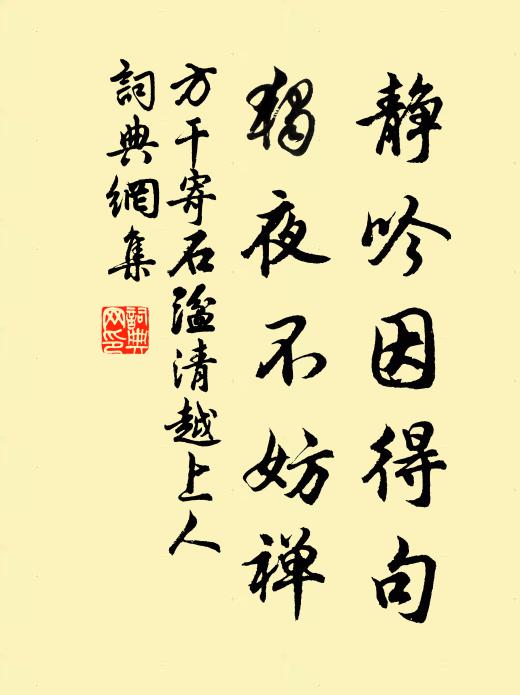 静吟因得句
獨夜不妨禅
方干寄石湓清越上人
詞典網集
詞典
网印